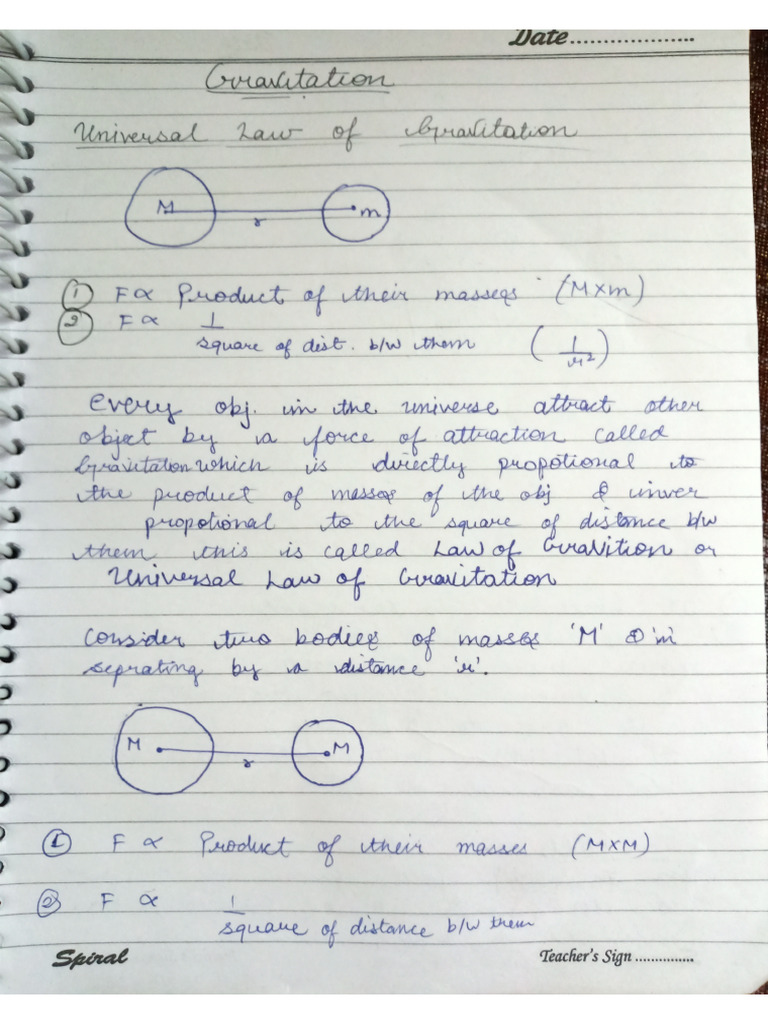 Date....................
Gravitation
Universal Law of Gravitation
M r m
① F ∝ Product of their masses (M×m)
② F ∝ 1
square of dist. b/w them (1/r²)
Every obj. in the universe attract other
object by a force of attraction called
Gravitation which is directly propotional to
the product of masses of the obj & inver
propotional to the square of distance b/w
them this is called Law of Gravition or
Universal Law of Gravitation
Consider two bodies of masses 'M' & 'm'
seprating by a distance 'r'.
M r M
① F ∝ Product of their masses (M×M)
② F ∝ 1
square of distance b/w them
Spiral Teacher's Sign ...............